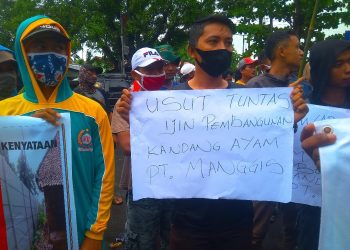 KENYATAAN
USUT TUNTAS
IJIN PEMBANGUNAN
KANDANG AYAM
PT. MANGGIS